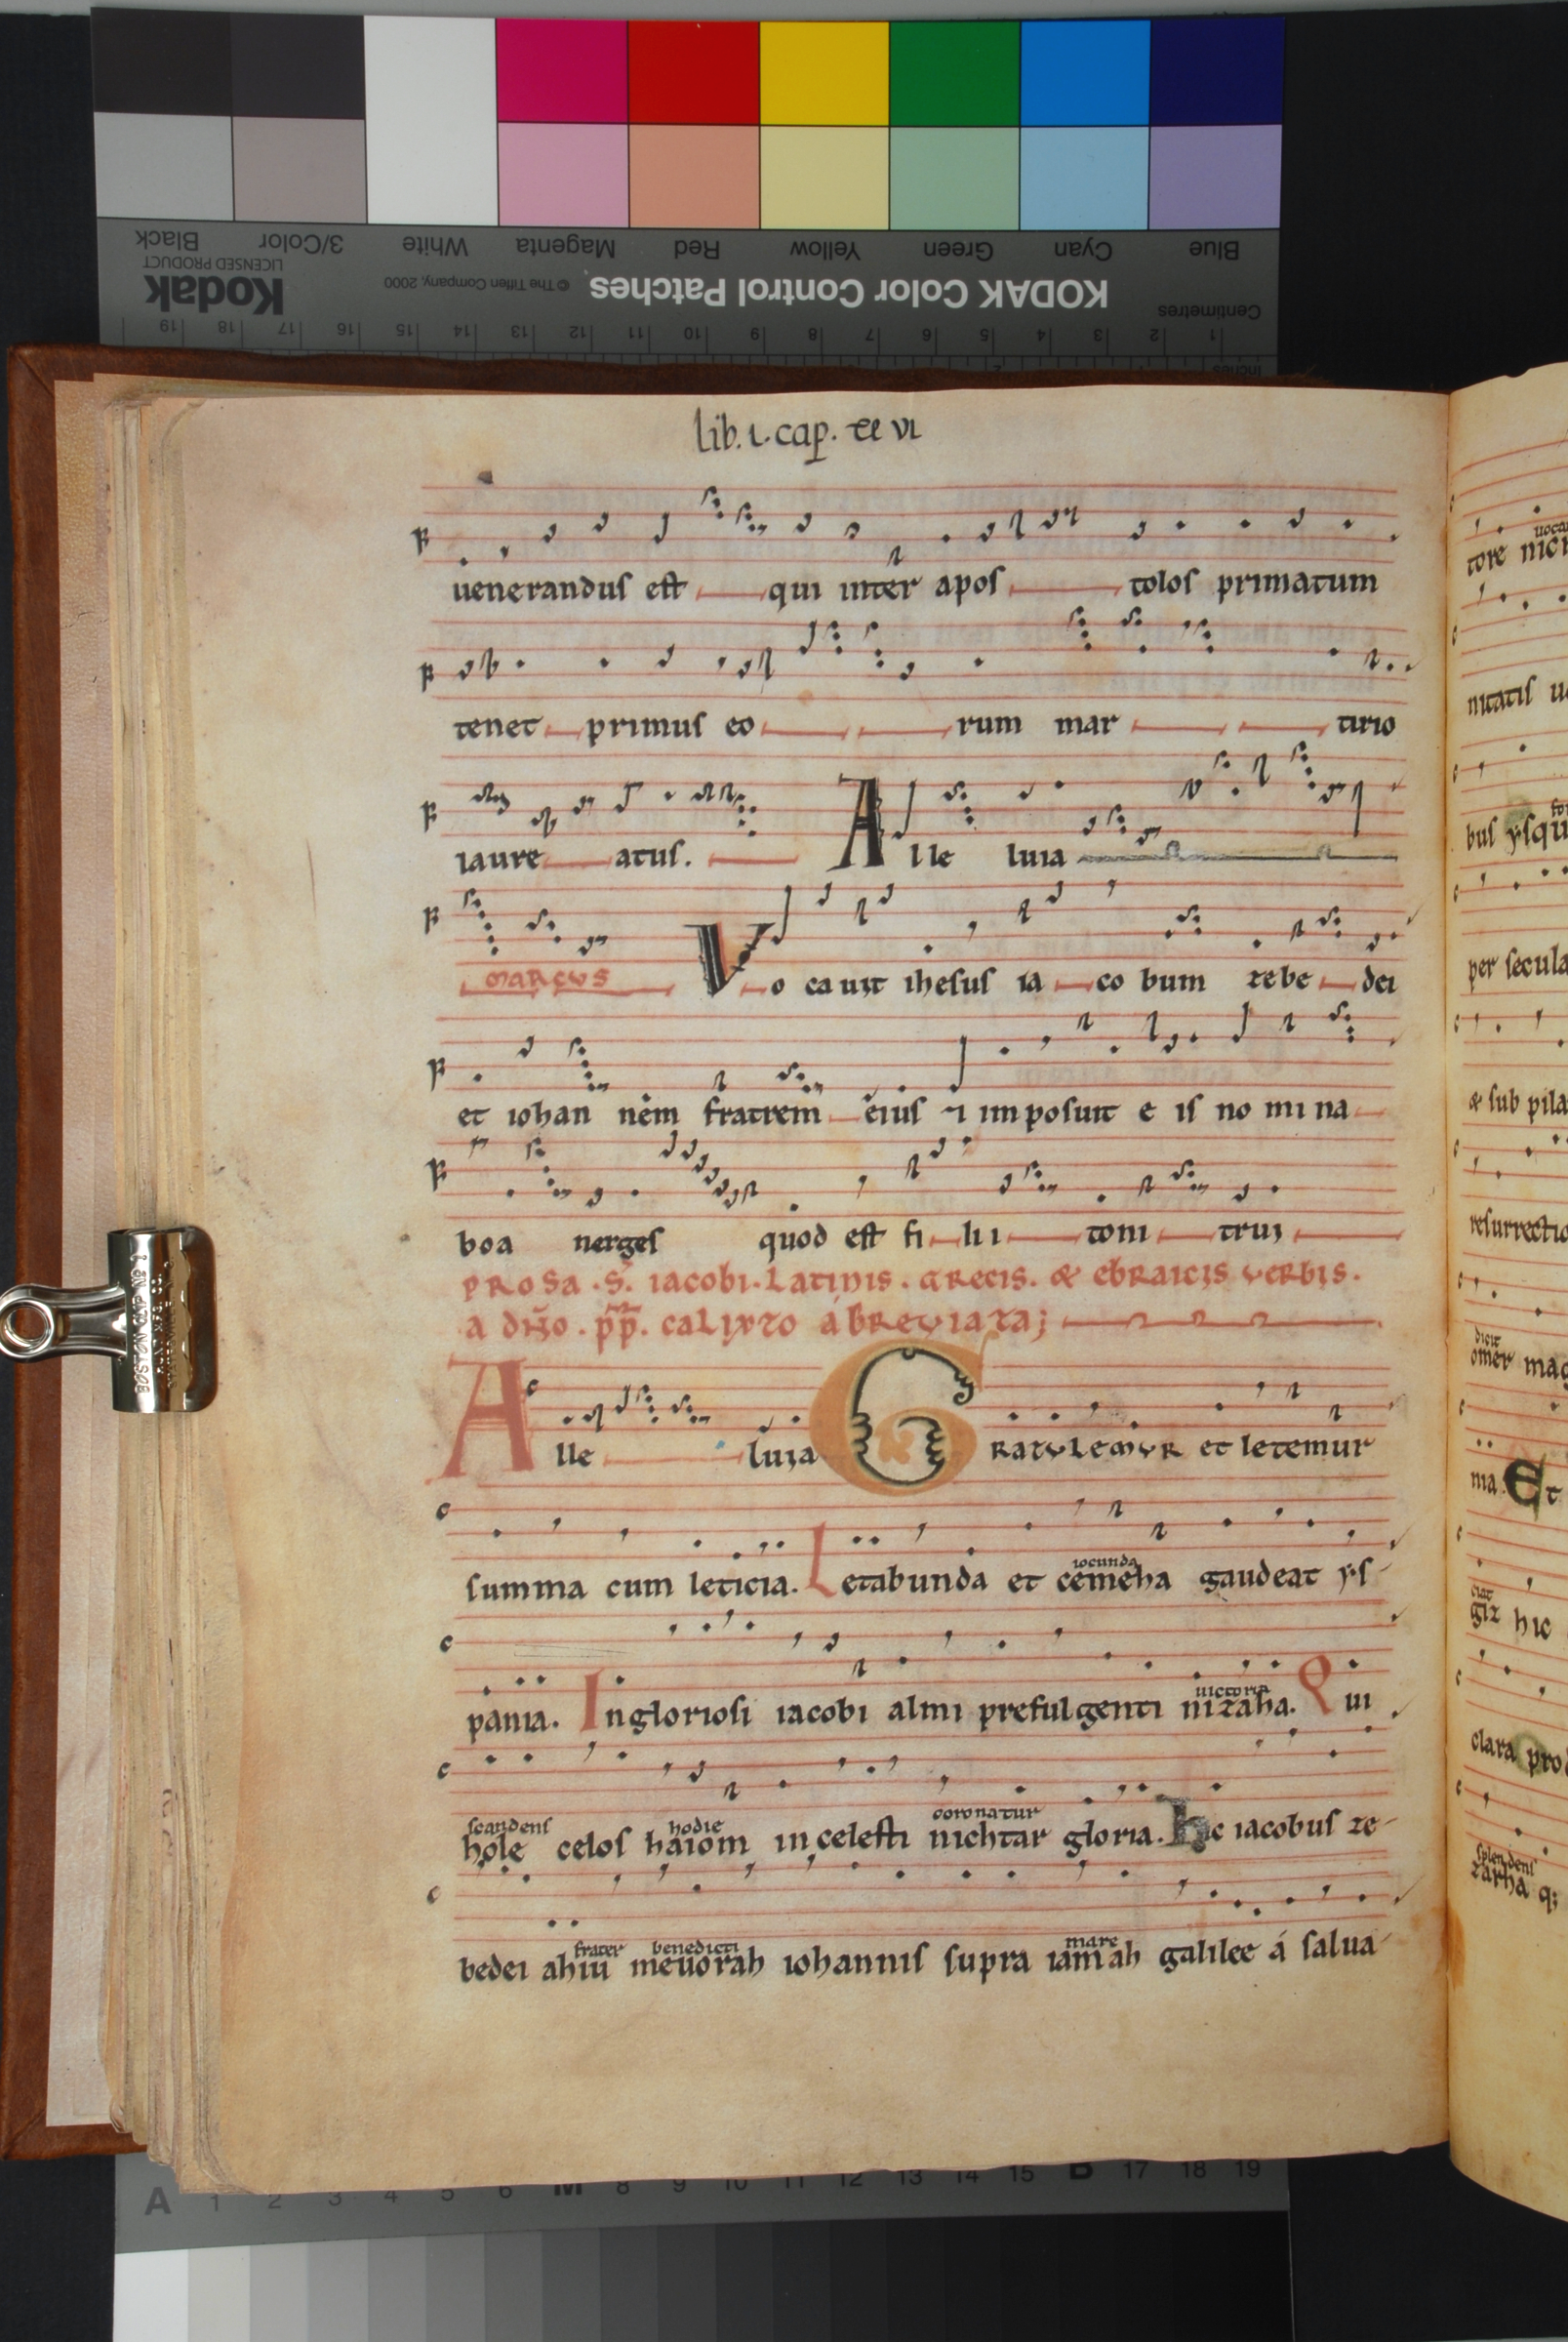 Black 3/Color White Magenta Red Yellow Green Cyan Blue
Kodak LICENSED PRODUCT © The Tiffen Company, 2000 KODAK Color Control Patches Centimetres
19 18 17 16 15 14 13 12 11 10 9 8 7 6 5 4 3 2 1
lib. i. cap.
uenerandus est qui inter apos tolos primatum
tenet primus eo rum mar tirio
laure atus. Alle luia
marcus Vo cauit ihesus ia co bum zebe dei
et iohan nem fratrem eius ⁊ imposuit e is no mi na
boa nerges quod est fi lii toni trui
prosa . S. iacobi. Latinis . grecis. & ebraicis verbis.
a dño . pp. calixto abreviata;
Alle luia GRATULEMUR et letemur
summa cum leticia. Letabunda et cemeha gaudeat ys
iocunda
pania. Ingloriosi iacobi almi prefulgenti nizaha. Qui
uictoria
scandens hodie coronatur
hole celos haiom in celesti nichtar gloria. hic iacobus ze
frater benedicti mare
bedei ahiu meuorah iohannis supra iamah galilee á salua
uoca
tore
nitatis
bus ysqu
per secula
& sub pila
resurrectio
dicit
omer mag
nia. Et
ciat
giz hic
clara prod
splendens
zarha q;
BOSTON CLIP No 2
A 1 2 3 4 5 6 M 8 9 10 11 12 13 14 15 B 17 18 19